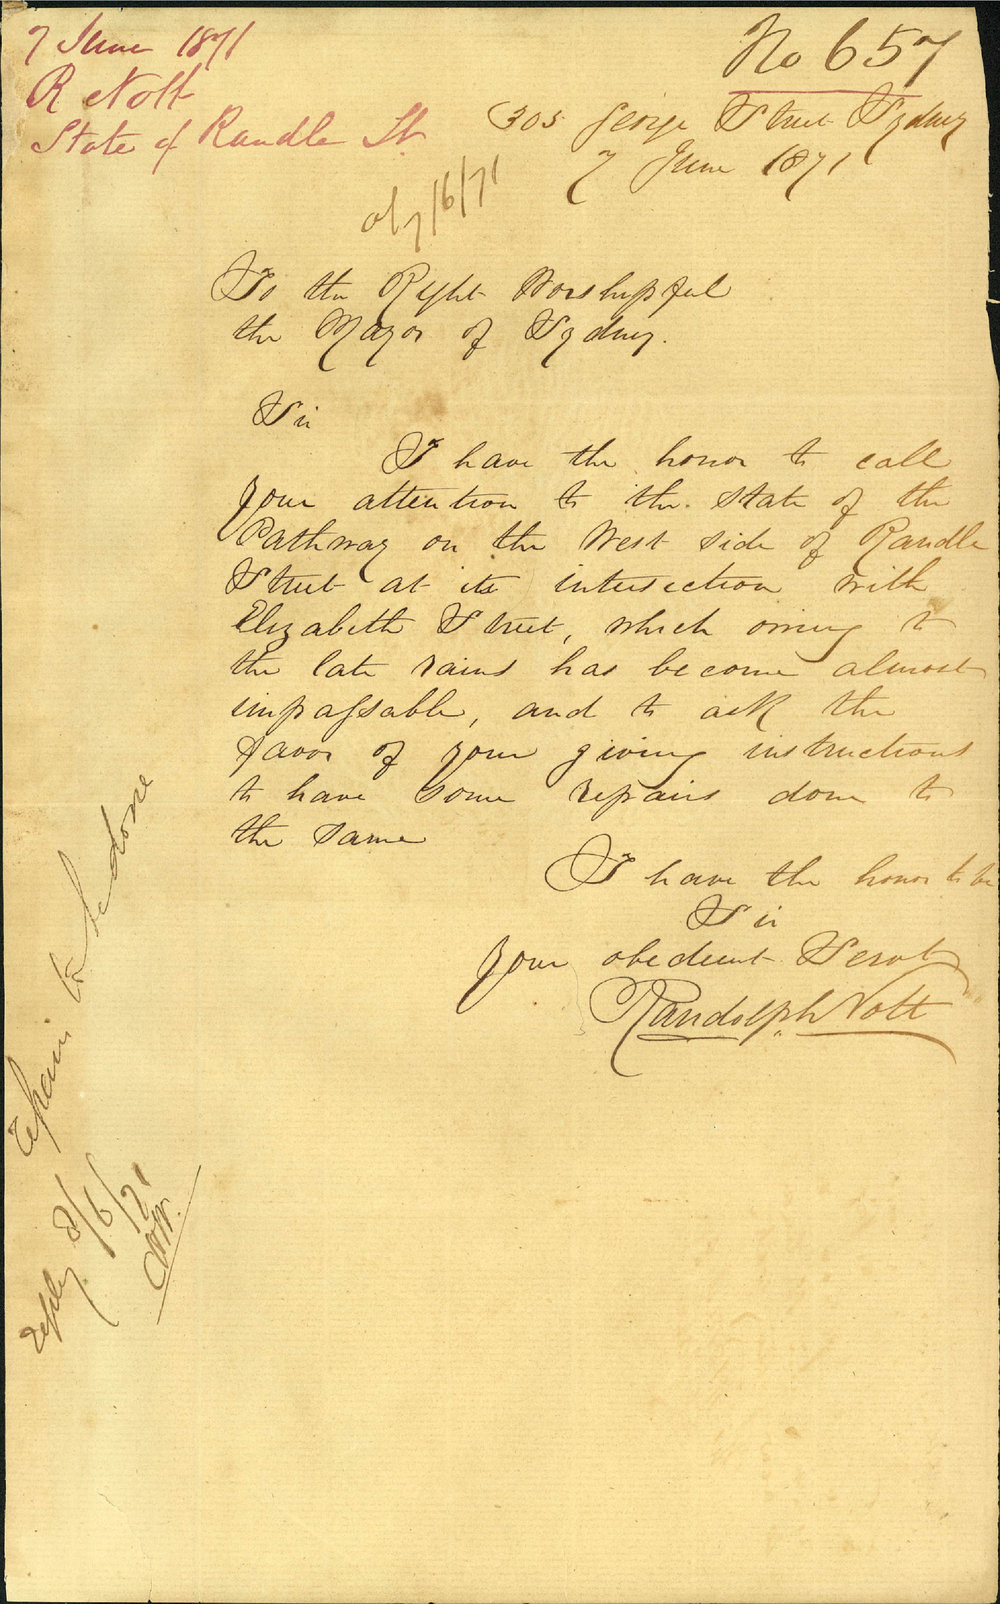 7 June 1871
R Nott
State of Randle St.
No 657
305 George Street Sydney
7 June 1871
7/6/71
To the Right Worshipful
the Mayor of Sydney.
Sir
I have the honor to call
your attention to the state of the
Pathway on the West side of Randle
Street at its intersection with
Elizabeth Street, which owing to
the late rains has become almost
impassable, and to ask the
favor of your giving instructions
to have some repairs done to
the same
I have the honor to be
Sir
Your obedient Servt
Randolph Nott
repairs to be done
reply 8/6/71